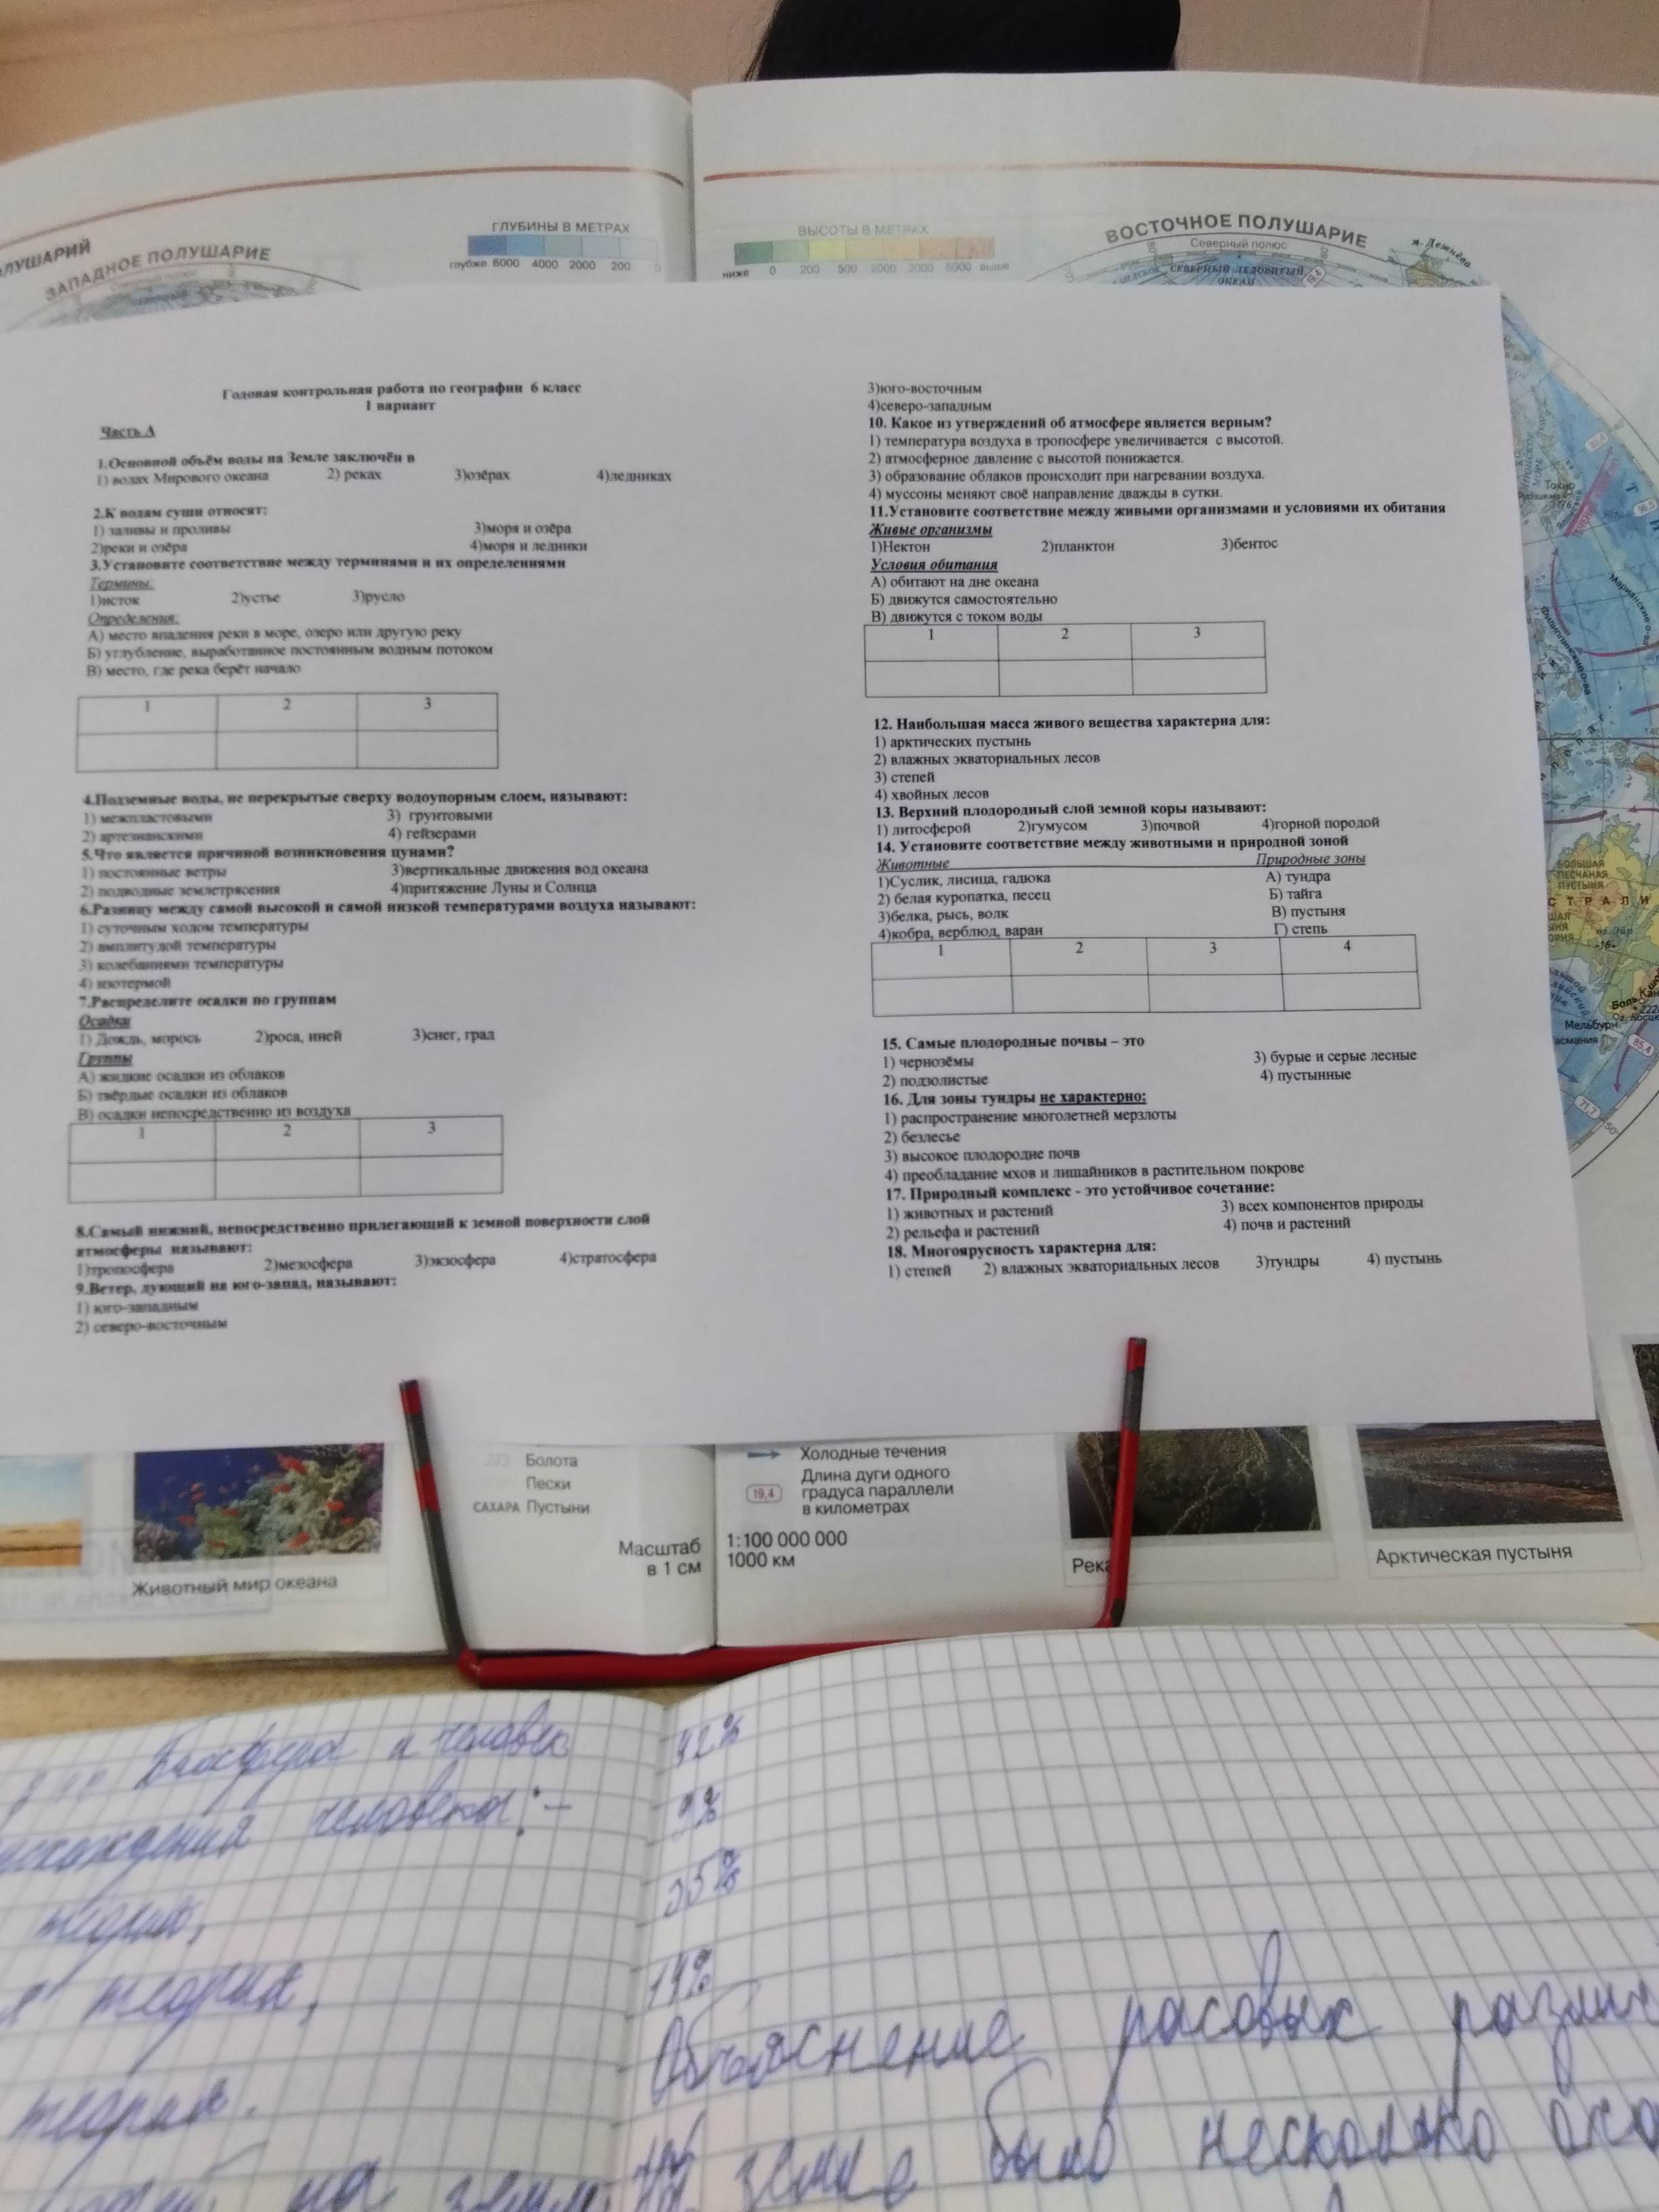 ЛУШАРИЙ
ЗАПАДНОЕ ПОЛУШАРИЕ
Северный полюс
ГЛУБИНЫ В МЕТРАХ
глубже 6000 4000 2000 200 0
ВЫСОТЫ В МЕТРАХ
ниже 0 200 500 2000 3000 5000 выше
ВОСТОЧНОЕ ПОЛУШАРИЕ
Северный полюс
м. Дежнёва
СЕВЕРНЫЙ ЛЕДОВИТЫЙ
ОКЕАН
19,4
Годовая контрольная работа по географии 6 класс
1 вариант
Часть А
1.Основной объём воды на Земле заключён в
1) водах Мирового океана 2) реках 3)озёрах 4)ледниках
2.К водам суши относят:
1) заливы и проливы 3)моря и озёра
2)реки и озёра 4)моря и ледники
3.Установите соответствие между терминами и их определениями
Термины:
1)исток 2)устье 3)русло
Определения:
А) место впадения реки в море, озеро или другую реку
Б) углубление, выработанное постоянным водным потоком
В) место, где река берёт начало
1 2 3
4.Подземные воды, не перекрытые сверху водоупорным слоем, называют:
1) межпластовыми 3) грунтовыми
2) артезианскими 4) гейзерами
5.Что является причиной возникновения цунами?
1) постоянные ветры 3)вертикальные движения вод океана
2) подводные землетрясения 4)притяжение Луны и Солнца
6.Разницу между самой высокой и самой низкой температурами воздуха называют:
1) суточным ходом температуры
2) амплитудой температуры
3) колебаниями температуры
4) изотермой
7.Распределите осадки по группам
Осадки
1) Дождь, морось 2)роса, иней 3)снег, град
Группы
А) жидкие осадки из облаков
Б) твёрдые осадки из облаков
В) осадки непосредственно из воздуха
1 2 3
8.Самый нижний, непосредственно прилегающий к земной поверхности слой
атмосферы называют:
1)тропосфера 2)мезосфера 3)экзосфера 4)стратосфера
9.Ветер, дующий на юго-запад, называют:
1) юго-западным
2) северо-восточным
3)юго-восточным
4)северо-западным
10. Какое из утверждений об атмосфере является верным?
1) температура воздуха в тропосфере увеличивается с высотой.
2) атмосферное давление с высотой понижается.
3) образование облаков происходит при нагревании воздуха.
4) муссоны меняют своё направление дважды в сутки.
11.Установите соответствие между живыми организмами и условиями их обитания
Живые организмы
1)Нектон 2)планктон 3)бентос
Условия обитания
А) обитают на дне океана
Б) движутся самостоятельно
В) движутся с током воды
1 2 3
12. Наибольшая масса живого вещества характерна для:
1) арктических пустынь
2) влажных экваториальных лесов
3) степей
4) хвойных лесов
13. Верхний плодородный слой земной коры называют:
1) литосферой 2)гумусом 3)почвой 4)горной породой
14. Установите соответствие между животными и природной зоной
Животные Природные зоны
1)Суслик, лисица, гадюка А) тундра
2) белая куропатка, песец Б) тайга
3)белка, рысь, волк В) пустыня
4)кобра, верблюд, варан Г) степь
1 2 3 4
15. Самые плодородные почвы – это
1) чернозёмы 3) бурые и серые лесные
2) подзолистые 4) пустынные
16. Для зоны тундры не характерно:
1) распространение многолетней мерзлоты
2) безлесье
3) высокое плодородие почв
4) преобладание мхов и лишайников в растительном покрове
17. Природный комплекс - это устойчивое сочетание:
1) животных и растений 3) всех компонентов природы
2) рельефа и растений 4) почв и растений
18. Многоярусность характерна для:
1) степей 2) влажных экваториальных лесов 3)тундры 4) пустынь
Токио
Марианские о-ва
Филиппинские о-ва
БОЛЬШАЯ
ПЕСЧАНАЯ
ПУСТЫНЯ
СТРАЛИ
Мельбурн
85,4
71,7
Болота
Пески
САХАРА Пустыни
Масштаб 1:100 000 000
в 1 см 1000 км
Холодные течения
19,4 Длина дуги одного
градуса параллели
в километрах
Животный мир океана
Река
Арктическая пустыня
Биосфера и человек
человека: –
теория,
теория,
теория.
на земле
42%
9%
35%
14%
Объяснение расовых
на земле было несколько